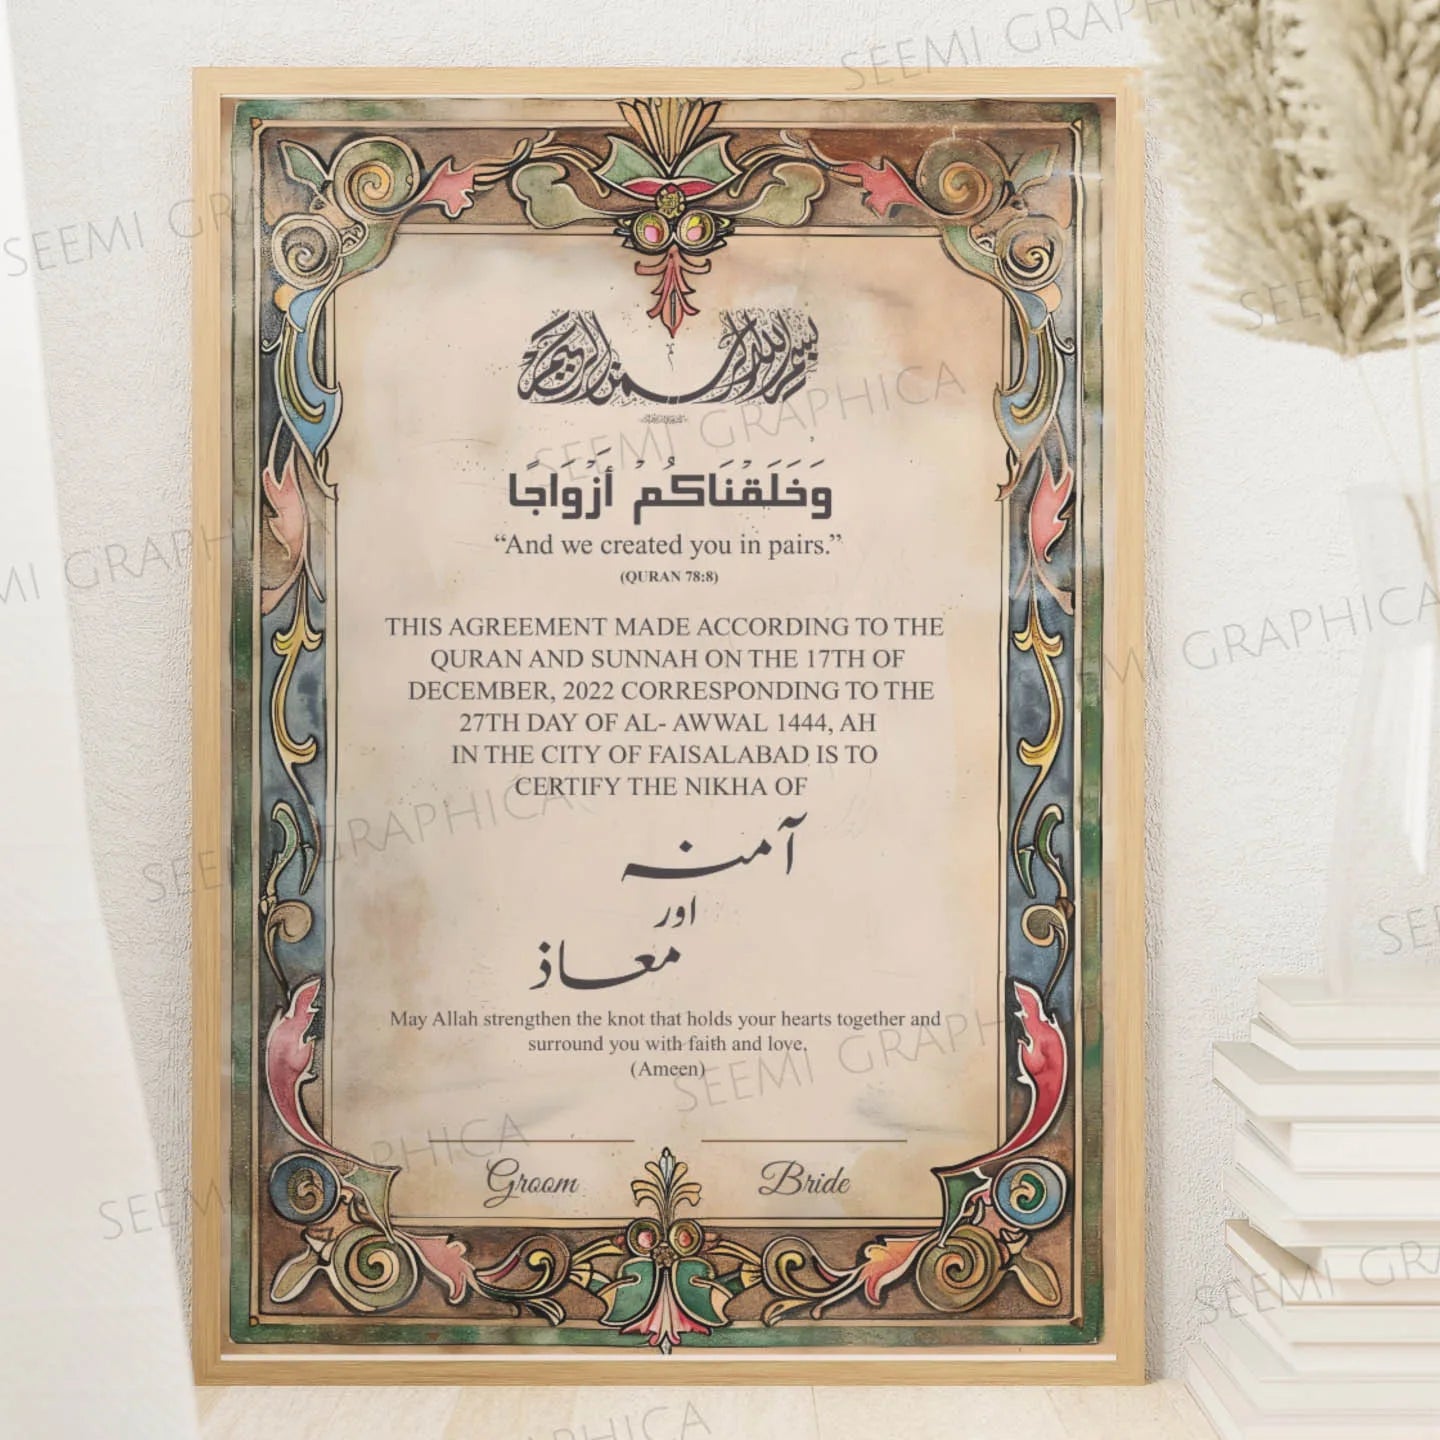 بسم الله الرحمن الرحيم
وَخَلَقْنَاكُمْ أَزْوَاجًا
“And we created you in pairs.”
(QURAN 78:8)
THIS AGREEMENT MADE ACCORDING TO THE
QURAN AND SUNNAH ON THE 17TH OF
DECEMBER, 2022 CORRESPONDING TO THE
27TH DAY OF AL- AWWAL 1444, AH
IN THE CITY OF FAISALABAD IS TO
CERTIFY THE NIKHA OF
آمنہ
اور
معاذ
May Allah strengthen the knot that holds your hearts together and
surround you with faith and love.
(Ameen)
Groom Bride
SEEMI GRAPHICA